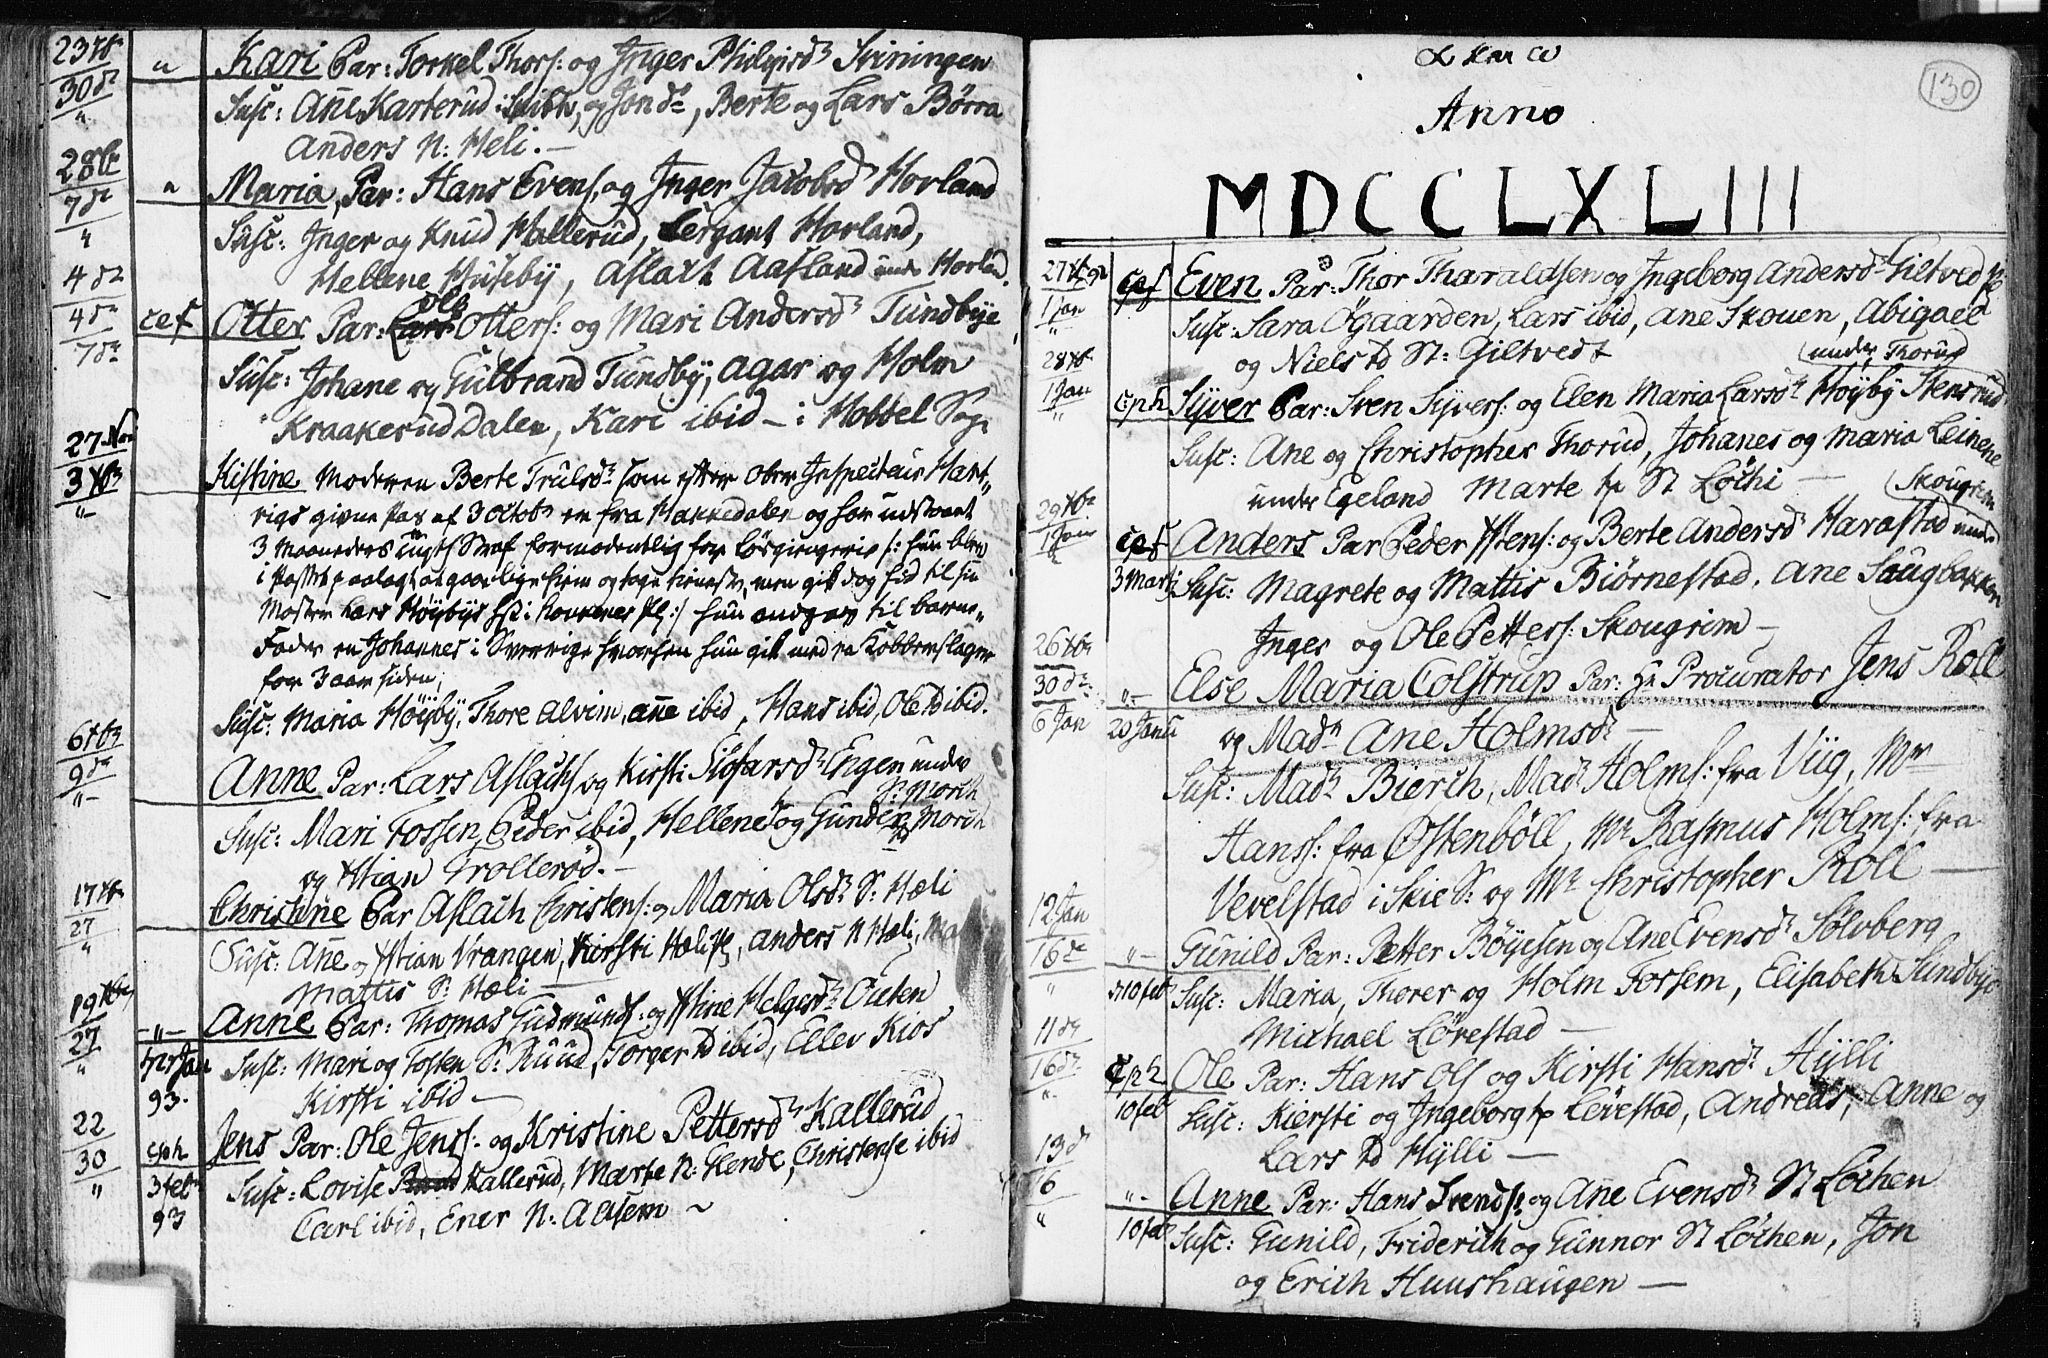 23 Xbr " Kari Par: Torkel Thors: og Inger Philipsdr Sviningen
30 dr Susc: Añe Karterud ibid, og Jon do, Berte og Lars Børra
" Anders N: Heli. —
28br " Maria, Par: Hans Evens: og Inger Jacobsdr Horland
7 dr Susc: Inger og Knud Hallerud, Sergant Horland,
" Hellene Huseby, Aslach Aasland under Horland
4 dr cef Otter Par: Ole Otters: og Mari Andersdr Tundbye
4 dr
7 dr Susc: Johane og Gulbrand Tundby, Agar og Holm
Kraakerud Dalen, Kari ibid — i Hobbel Sogn
27 Nov
3 Xbr Kistine Moderen Berte Trulsdr som efter Ober Inspecteur Hart-
"- vigs givne Pas af 3 Octobr er fra Hakkedalen og har udstaaet
3 Maaneders Tugts Straf formodentlig for Løsgiengerie /: hun blev
i Passet paalagt at gaae lige hiem og tage tieneste, men gik dog hid til sin
Moster Lars Høybys hst: i Pl :/ hun angav til barne-
Fader en Johannes i Sverrige hvorhen hun gik med en Kobberslager
for 3 aar siden;
Susc: Maria Høyby, Thore Alvim, añe ibid, Hans ibid, Ole D ibid.
6 Xbr
9 dr Anne Par: Lars Aslachs og Kirsti Elofarsdr Engen under
"- S: Morch
Susc: Mari Fossen, Peder ibid, Hellene og Gunder Morch
og Xstian Trollerød. —
17 Xbr
27 Christine Par Aslach Christens: og Maria Olsdr S: Hæli
" Susc: Añe og Xstian Vrangen, Kirsti Hæli Pl, anders N Hæli,
Mattis S: Hæli —
19 Xbr -"- Anne Par: Thomas Gudmunds: og Xstine Helgesdr Outen
27 Susc: Mari og Tosten S: Ruud, Torger D ibid, Ellev Kios
" 93. Kirsti ibid —
22 cph Jens Par: Ole Jens: og Kristine Pettersdr Kallerud
30 3 febr Susc: Lovise Kallerud, Marte N: Glende, Christense ibid
" 93 Carl ibid, Ener N: Aasem ~
130
Anno
MDCCLXLIII
27 Xbr 92 cef Even Par: Thor Tharaldsen og Ingeborg Andersdr Giltved Pl
1 Jan Susc: Sara Øgaarden, Lars ibid, Ane Skouen, Abigael
" og Niels D St: Giltvedt
28 Xbr (under Thorud
1 Jan cph Syver Par: Sven Syvers: og Elen Maria Larsdr Høyby Stensrud
" Susc: Ane og Christopher Thorud, Johanes og Maria Leinene
under Egeland Marte p St Løchi —
(Skougrim
29 Xbr
1 Jan cef Anders Par Peder Xstens: og Berte Andersdr Harastad under
3 Marti Susc: Magrete og Mattis Biørnestad, Ane Saugbakken
Inger og Ole Petters: Skougrim —
26 Xbr
30 dr "- Else Maria Colstrup Par: Hr Procurator Jens Roll
6 Jan 20 Janu og Madm Ane Holmsdr —
Susc: Madm Bierch, Madm Holms: fra Viig, Mr
Hanss: fra Østenbøll, Mr Rasmus Holms: fra
Vevelstad i Skie S: og Mr Christopher Roll —
12 Jan
16 dr "- Gunild Par: Petter Bøyesen og Ane Evensdr Sølvberg
" 10 feb Susc: Maria, Thorer og Holm Forsem, Elisabeth Sundbye
Michael Lørestad —
11 dr
16 dr cph Ole Par: Hans Ols og Kirsti Hansdr Hylli
"- 10 feb Susc: Kiersti og Ingeborg p Levestad, Andreas, Anne og
Lars D Hylli —
13 d
16 "- Anne Par: Hans Svends: og Añe Evensdr St Løchen
" 10 feb Susc: Gunild, Friderich og Gunnor St Løchen, Jon
og Erich Huushaugen —